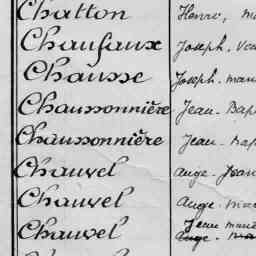 Chatton Henri, ma
Chaufaux Joseph, Vic
Chausse Joseph-mari
Chaussonnière Jean-Bap
Chaussonnière Jean-Bap
Chauvel Ange-Jean
Chauvel Ange-mar
Chauvel Jean marie
Ange-ma